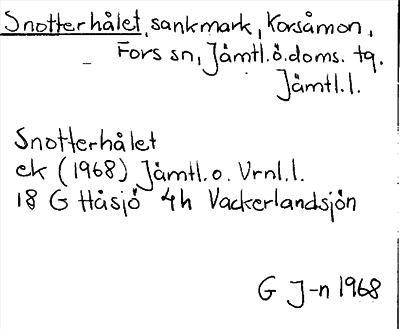 Snotterhålet, sankmark, Korsåmon,
Fors sn, Jämtl.ö.doms. tg.
Jämtl.l.
Snotterhålet
ek (1968) Jämtl. o. Vrnl.l.
18 G Håsjö 4h Vackerlandsjön
G J-n 1968